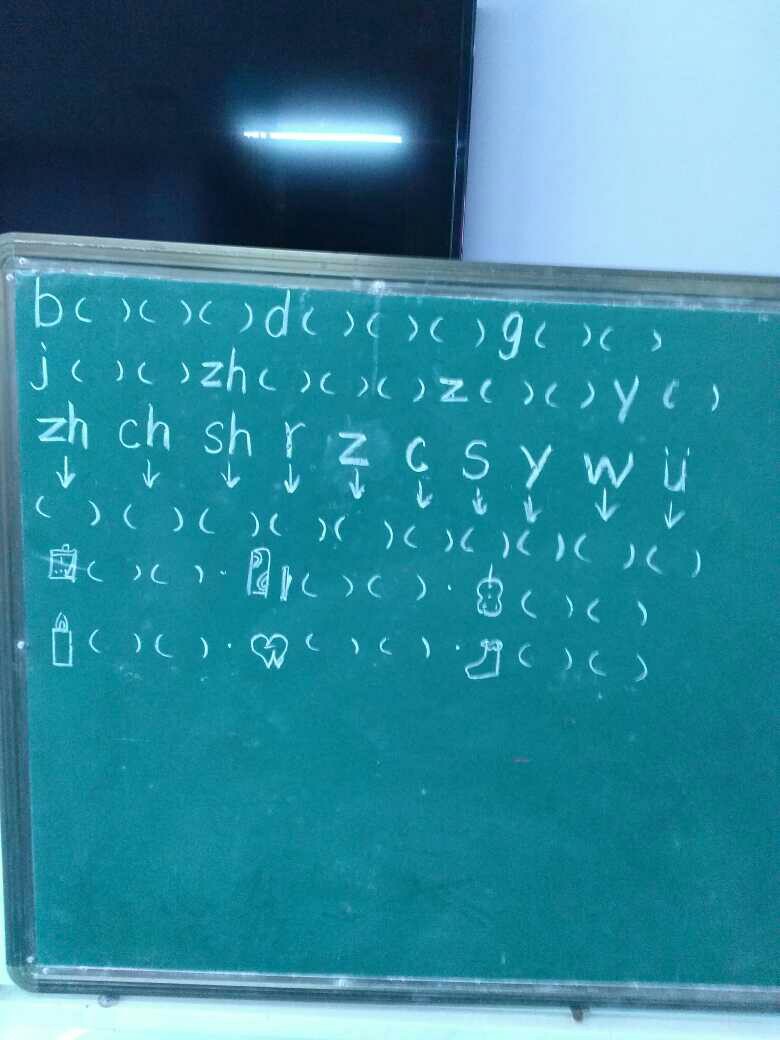 b( )( )( )d( )( )( )g( )( )
j( )( )zh( )( )( )z( )( )y( )
zh ch sh r z c s y w ü
↓ ↓ ↓ ↓ ↓ ↓ ↓ ↓ ↓ ↓
( )( )( )( )( )( )( )( )( )( )
( )( )·( )( )·( )( )
( )( )·( )( )·( )( )